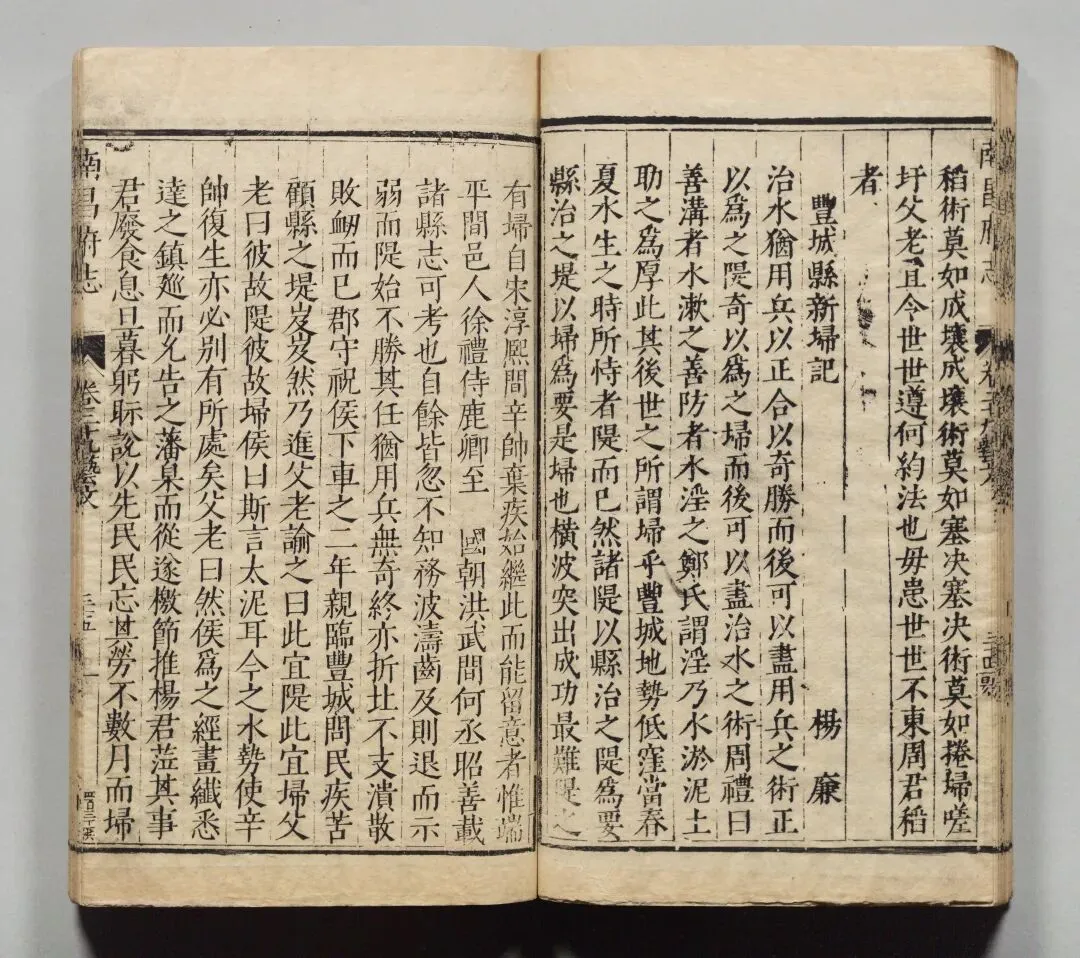 稻術莫如成壤成壤術莫如塞决塞决術莫如捲埽嗟
圩父老且令世世遵何約法也毋患世世不東周君稻
者
豐城縣新埽記
楊廉
治水猶用兵以正合以奇勝而後可以盡用兵之術正
以為之隄奇以為之埽而後可以盡治水之術周禮曰
善溝者水漱之善防者水淫之鄭氏謂淫乃水淤泥土
助之為厚此其後世之所謂埽乎豐城地勢低窪當春
夏水生之時所恃者隄而已然諸隄以縣治之隄為要
縣治之堤以埽為要是埽也橫波突出成功最難隄之
有埽自宋淳熈間辛帥棄疾始繼此而能留意者惟端
平間邑人徐禮侍鹿卿至 國朝洪武間何丞昭善載
諸縣志可考也自餘皆忽不知務波濤齒及則退而示
弱而隄始不勝其任猶用兵無奇終亦折北不支潰散
敗衂而已郡守祝侯下車之二年親臨豐城問民疾苦
顧縣之堤岌岌然乃進父老諭之曰此宜隄此宜埽父
老曰彼故隄彼故埽侯曰斯言太泥耳今之水勢使辛
帥復生亦必別有所處矣父老曰然侯為之經畫纖悉
達之鎮廵而允告之藩臬而從遂檄節推楊君蒞其事
君廢食息旦暮躬眎說以先民民忘其勞不數月而埽
南昌府志
卷二十九藝文
三十五